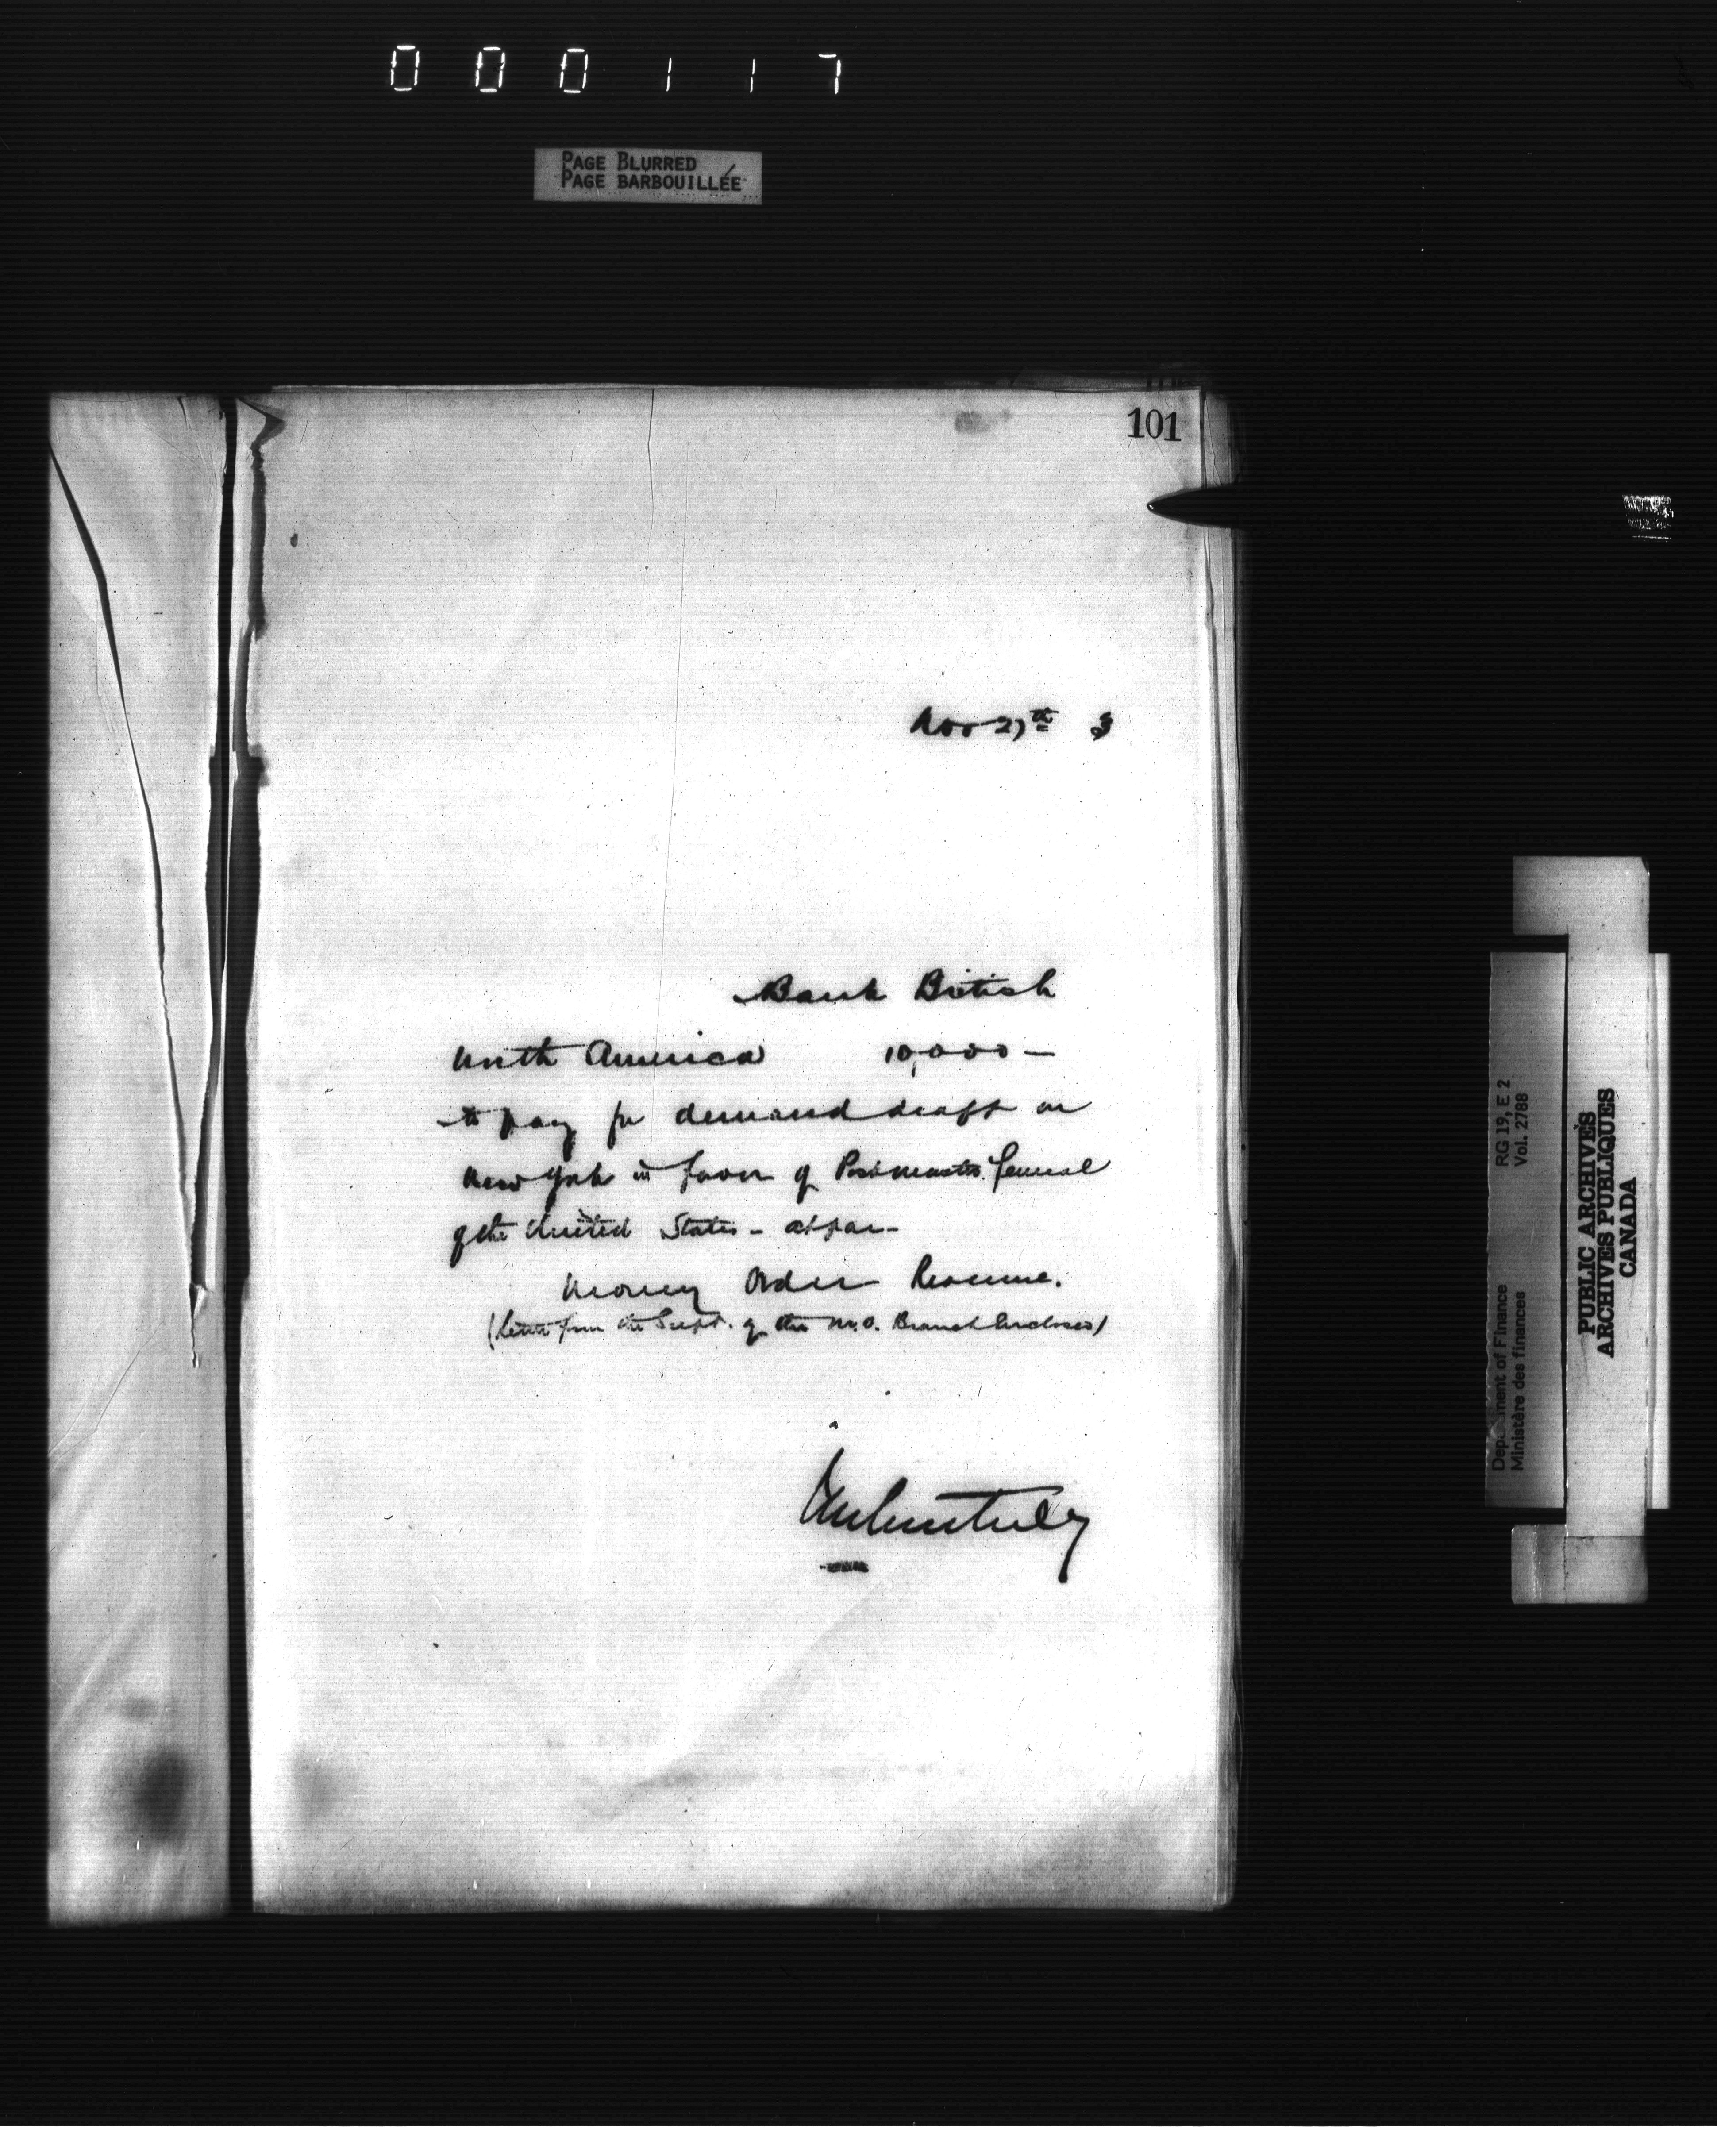 000117
PAGE BLURRED
PAGE BARBOUILLÉE
101
Nov 27th 3
Bank British
North America 10,000 —
to pay for demand draft on
New York in favor of Postmaster General
of the United States - at par -
Money Order Revenue.
(Letter from the Supt. of the M.O. Branch Enclosed)
RG 19, E 2
Vol. 2788
Department of Finance
Ministère des finances
PUBLIC ARCHIVES
ARCHIVES PUBLIQUES
CANADA